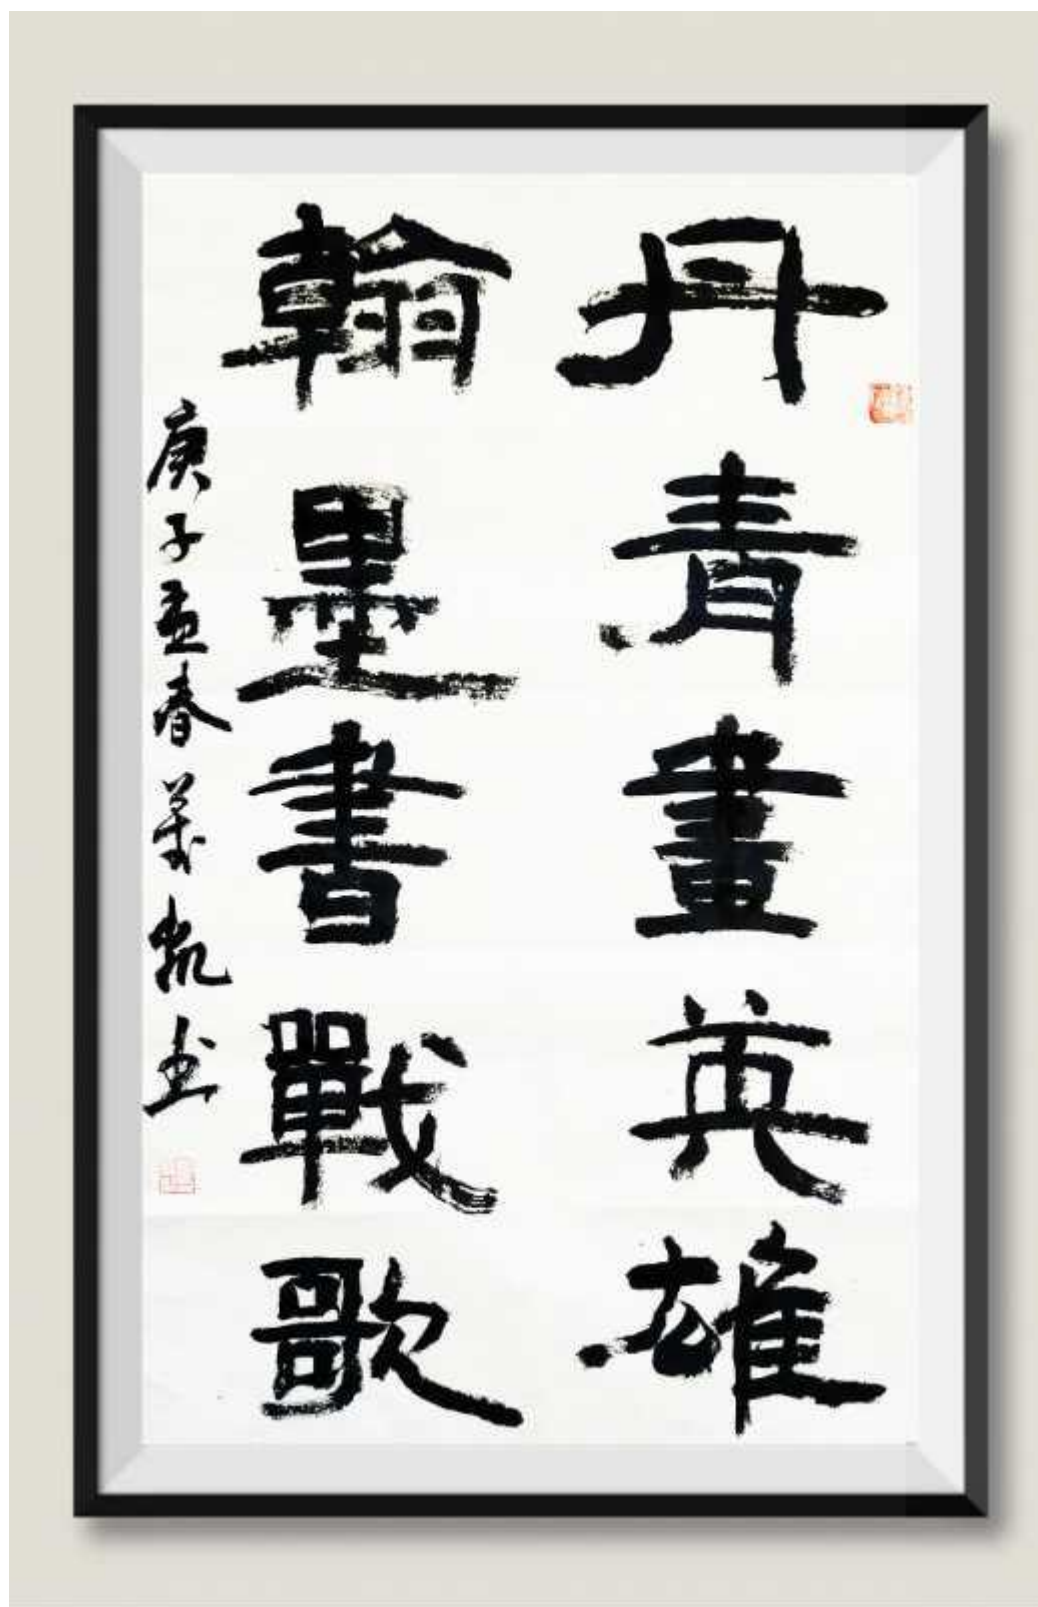 丹青畫英雄
翰墨書戰歌
庚子孟春